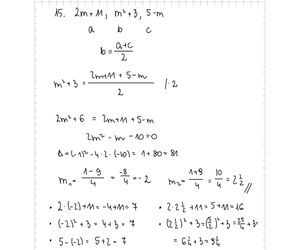 15. 2m+11, m²+3, 5-m
a b c
b = a+c/2
m²+3 = 2m+11+5-m/2 /·2
2m²+6 = 2m+11+5-m
2m²-m-10=0
Δ=(-1)²-4·2·(-10)=1+80=81
m₁ = 1-9/4 = -8/4 = -2
m₂ = 1+9/4 = 10/4 = 2½
• 2·(-2)+11=-4+11=7
• 2·2½+11=5+11=16
• (-2)²+3=4+3=7
• (2½)²+3=(5/2)²+3=25/4+3=
• 5-(-2)=5+2=7
=6¼+3=9¼